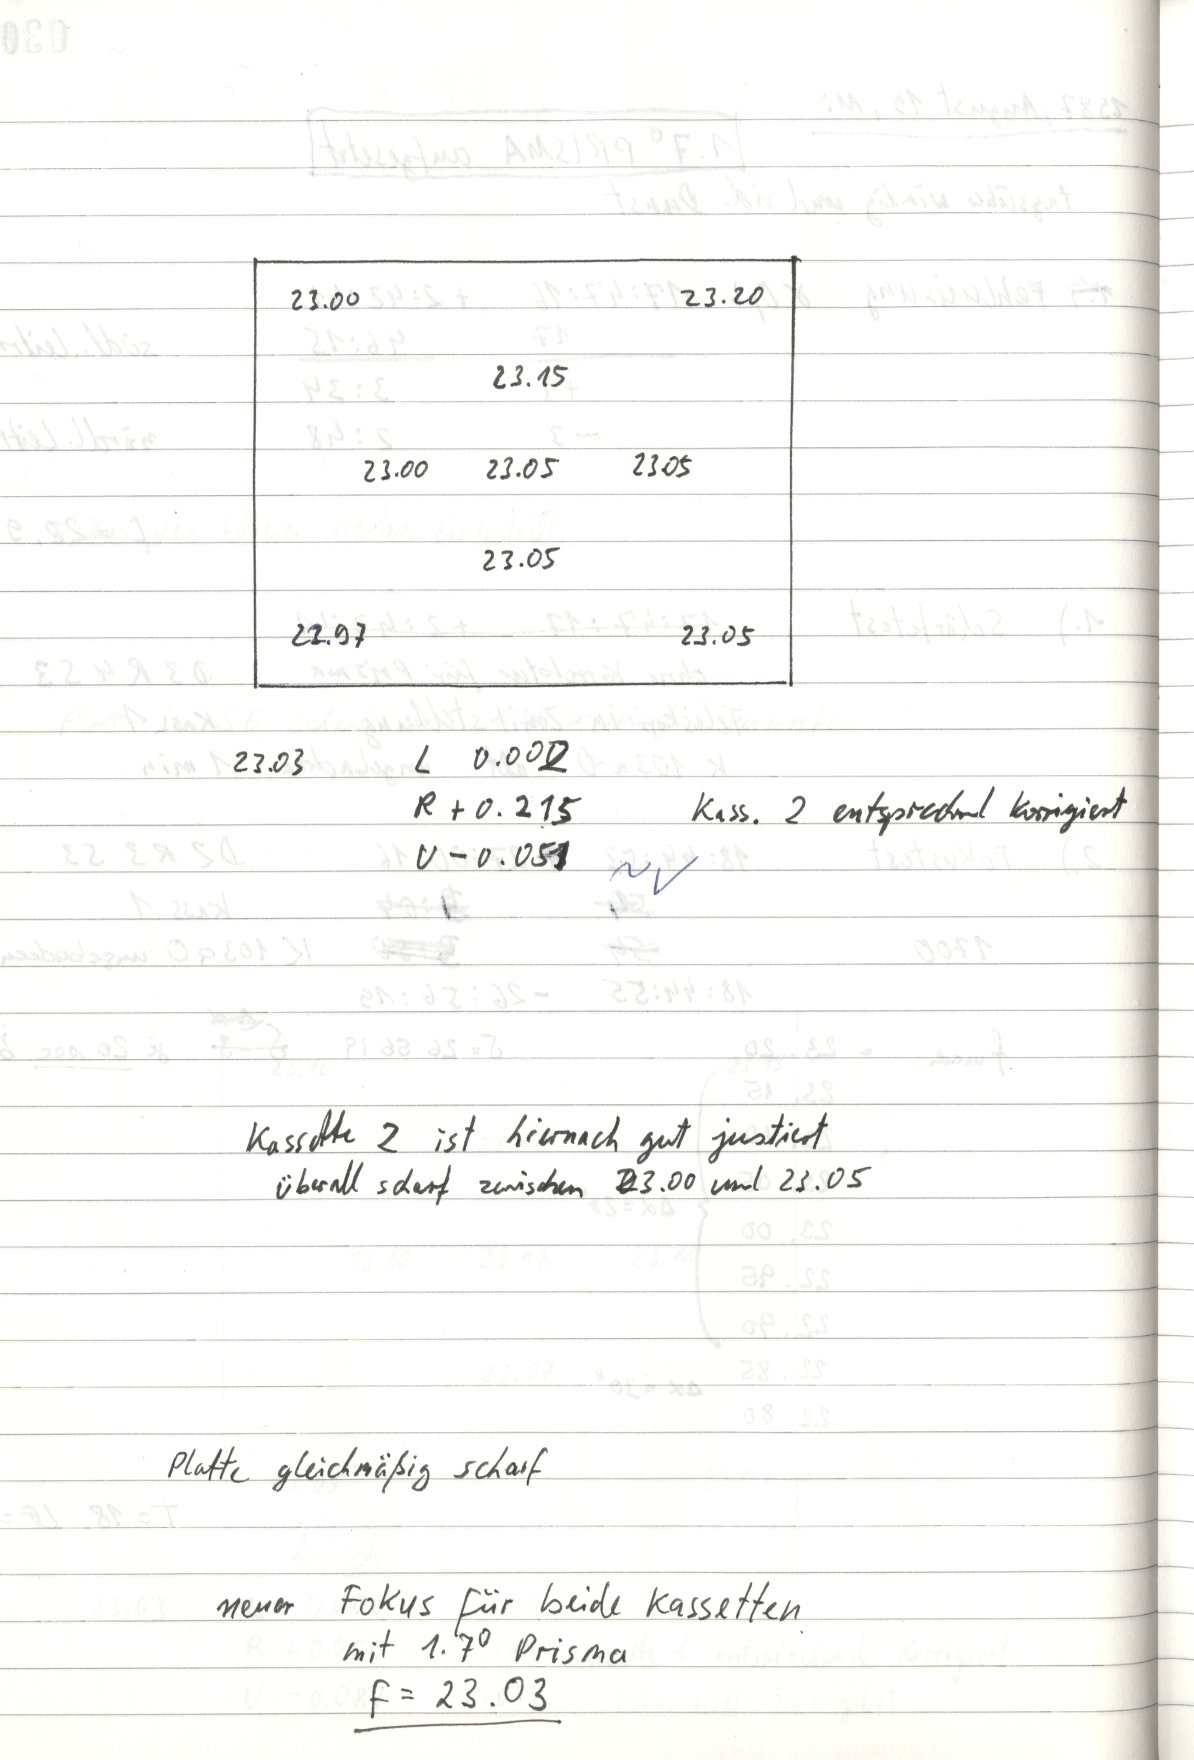 23.00 23.20
23.15
23.00 23.05 23.05
23.05
22.97 23.05
23.03 L 0.002
R + 0.215 Kass. 2 entsprechend korrigiert
U - 0.051
Kassette 2 ist hiernach gut justiert
überall scharf zwischen 23.00 und 23.05
Platte gleichmäßig scharf
neuer Fokus für beide Kassetten
mit 1.7° Prisma
f = 23.03